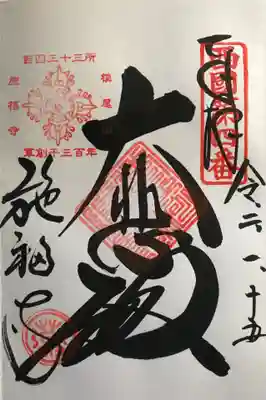 奉拝
西國第四番
令二、一、十五
大悲殿
施福寺
西国三十三所
施福寺
草創千三百年